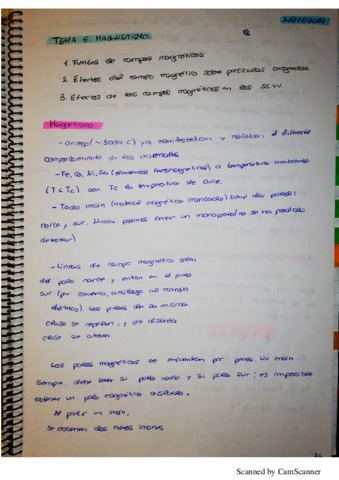 TEMA 6: MAGNETISMO.
1. Fuentes de campos magnéticos
2. Efectos del campo magnético sobre partículas cargadas
3. Efectos de los campos magnéticos en los SS.VV
Magnetismo
- Griegos (~ 5000 C) ya manifestaban y notaban el diferente
comportamiento de los materiales
- Fe, Co, Ni, Gd (elementos ferromagnéticos) a temperatura ambiente
(T < Tc) con Tc la temperatura de Curie.
- Todo imán (material magnético) tiene dos polos:
norte y sur. un monopolo (no se ha podido
detectar)
- Líneas de campo magnético salen
del polo norte y entran en el polo
sur (por convenio, análogo al campo
eléctrico). Los polos de la misma
clase se repelen, y de distinta
clase se atraen
Los polos magnéticos se encuentran por pares. Un imán
siempre debe tener su polo norte y su polo sur; es imposible
obtener un polo magnético aislado.
Al partir un imán,
se obtienen dos nuevos imanes
Scanned by CamScanner